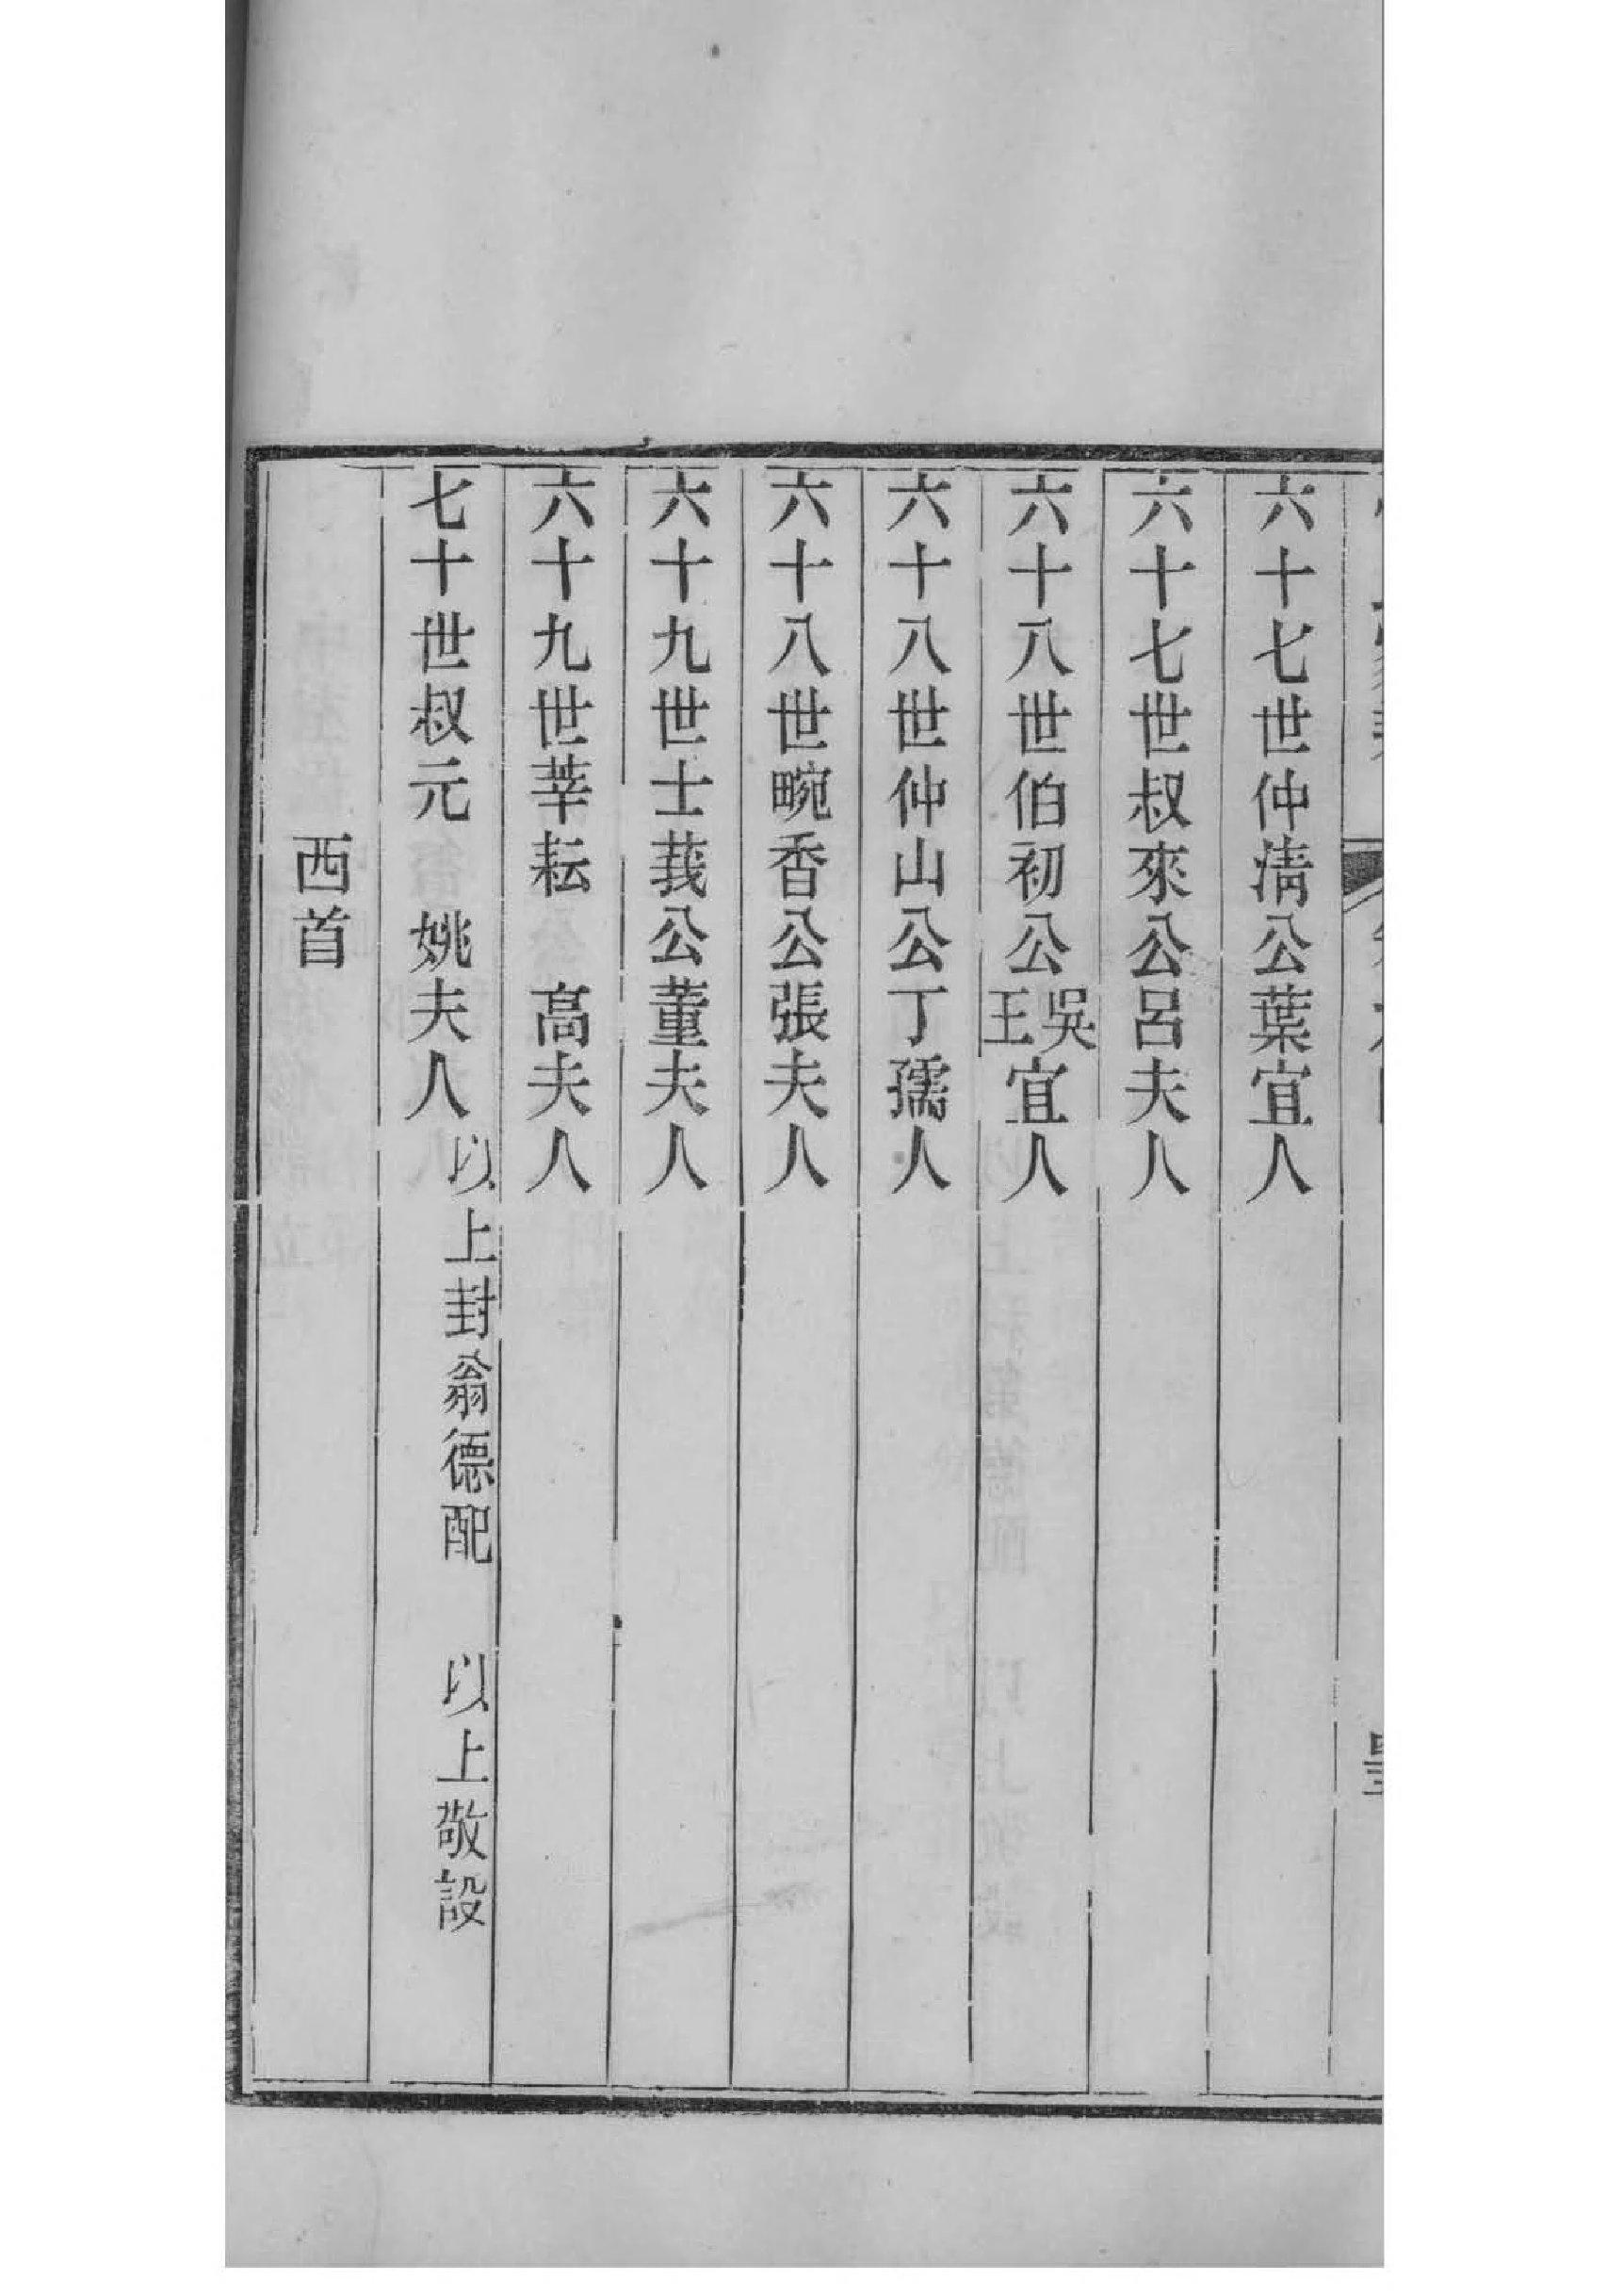 六十七世仲淸公葉宜人
六十七世叔來公呂夫人
六十八世伯初公吳王宜人
六十八世仲山公丁孺人
六十八世畹香公張夫人
六十九世士莪公董夫人
六十九世莘耘　高夫人
七十世叔元　姚夫人　以上封翁德配　以上敬設
西首